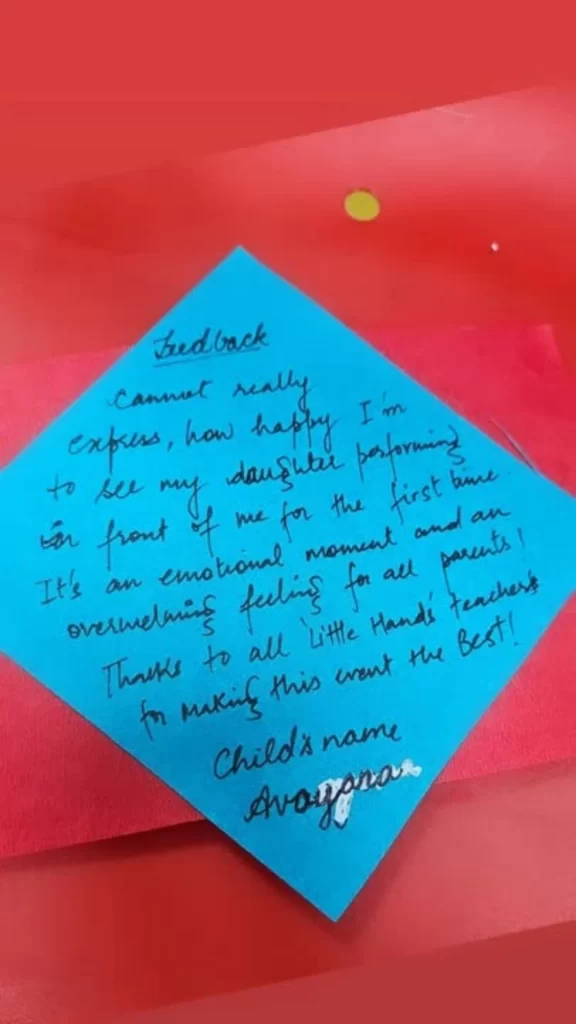 Feedback
Cannot really
express, how happy I'm
to see my daughter performing
in front of me for the first time.
It's an emotional moment and an
overwelming feeling for all parents!
Thanks to all 'Little Hands' teachers
for making this event the Best!
Child's name
Avayana